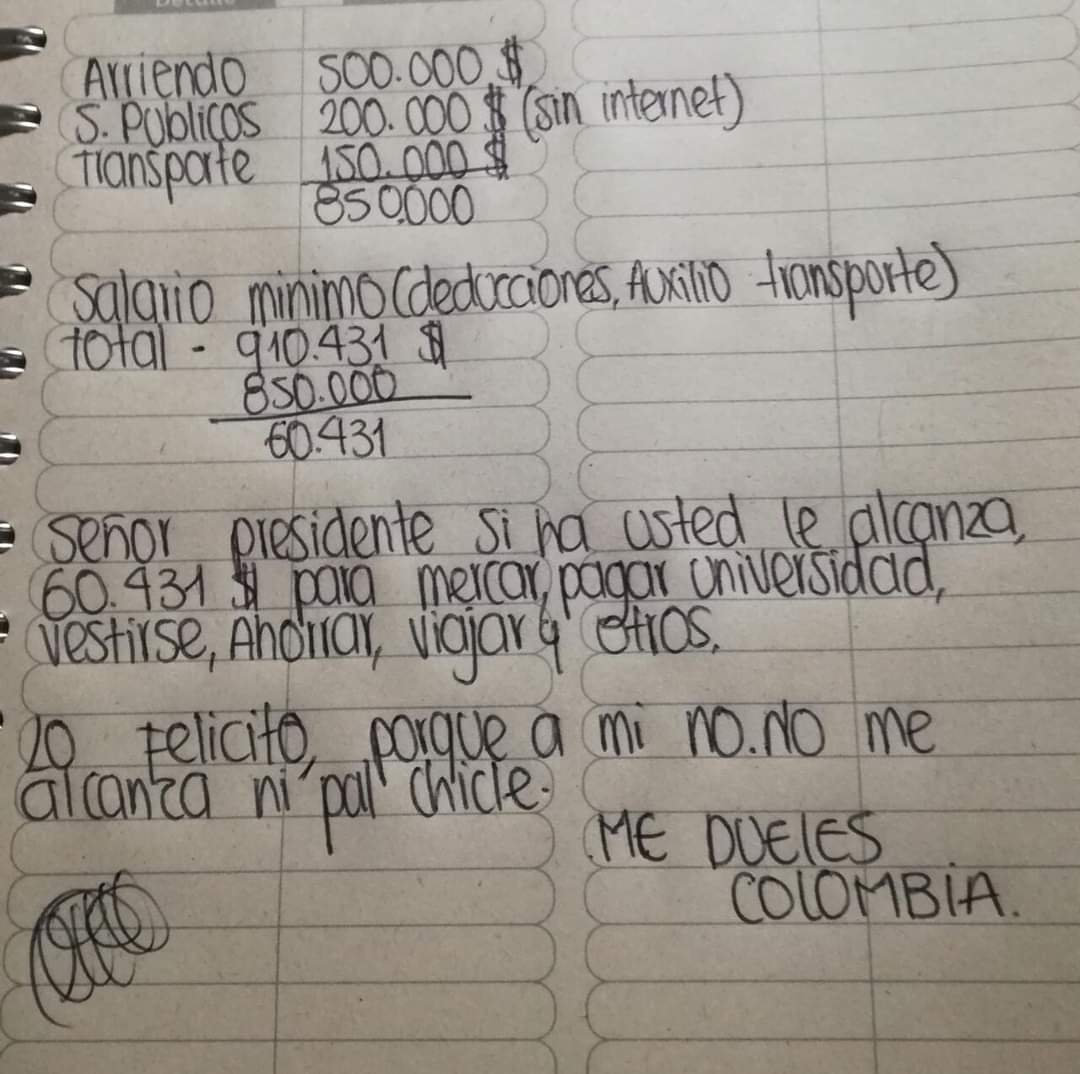 Detalle
Arriendo 500.000 $
S. Publicos 200.000 $ (sin internet)
Transporte 150.000 $
850.000
Salario minimo (deducciones, Auxilio transporte)
total - 910.431 $
850.000
60.431
Señor presidente si ha usted le alcanza,
60.431 $ para mercar, pagar universidad,
vestirse, Ahorrar, viajar y otros.
lo felicito, porque a mi no. No me
alcanza ni pal chicle.
ME DUELES
COLOMBIA.